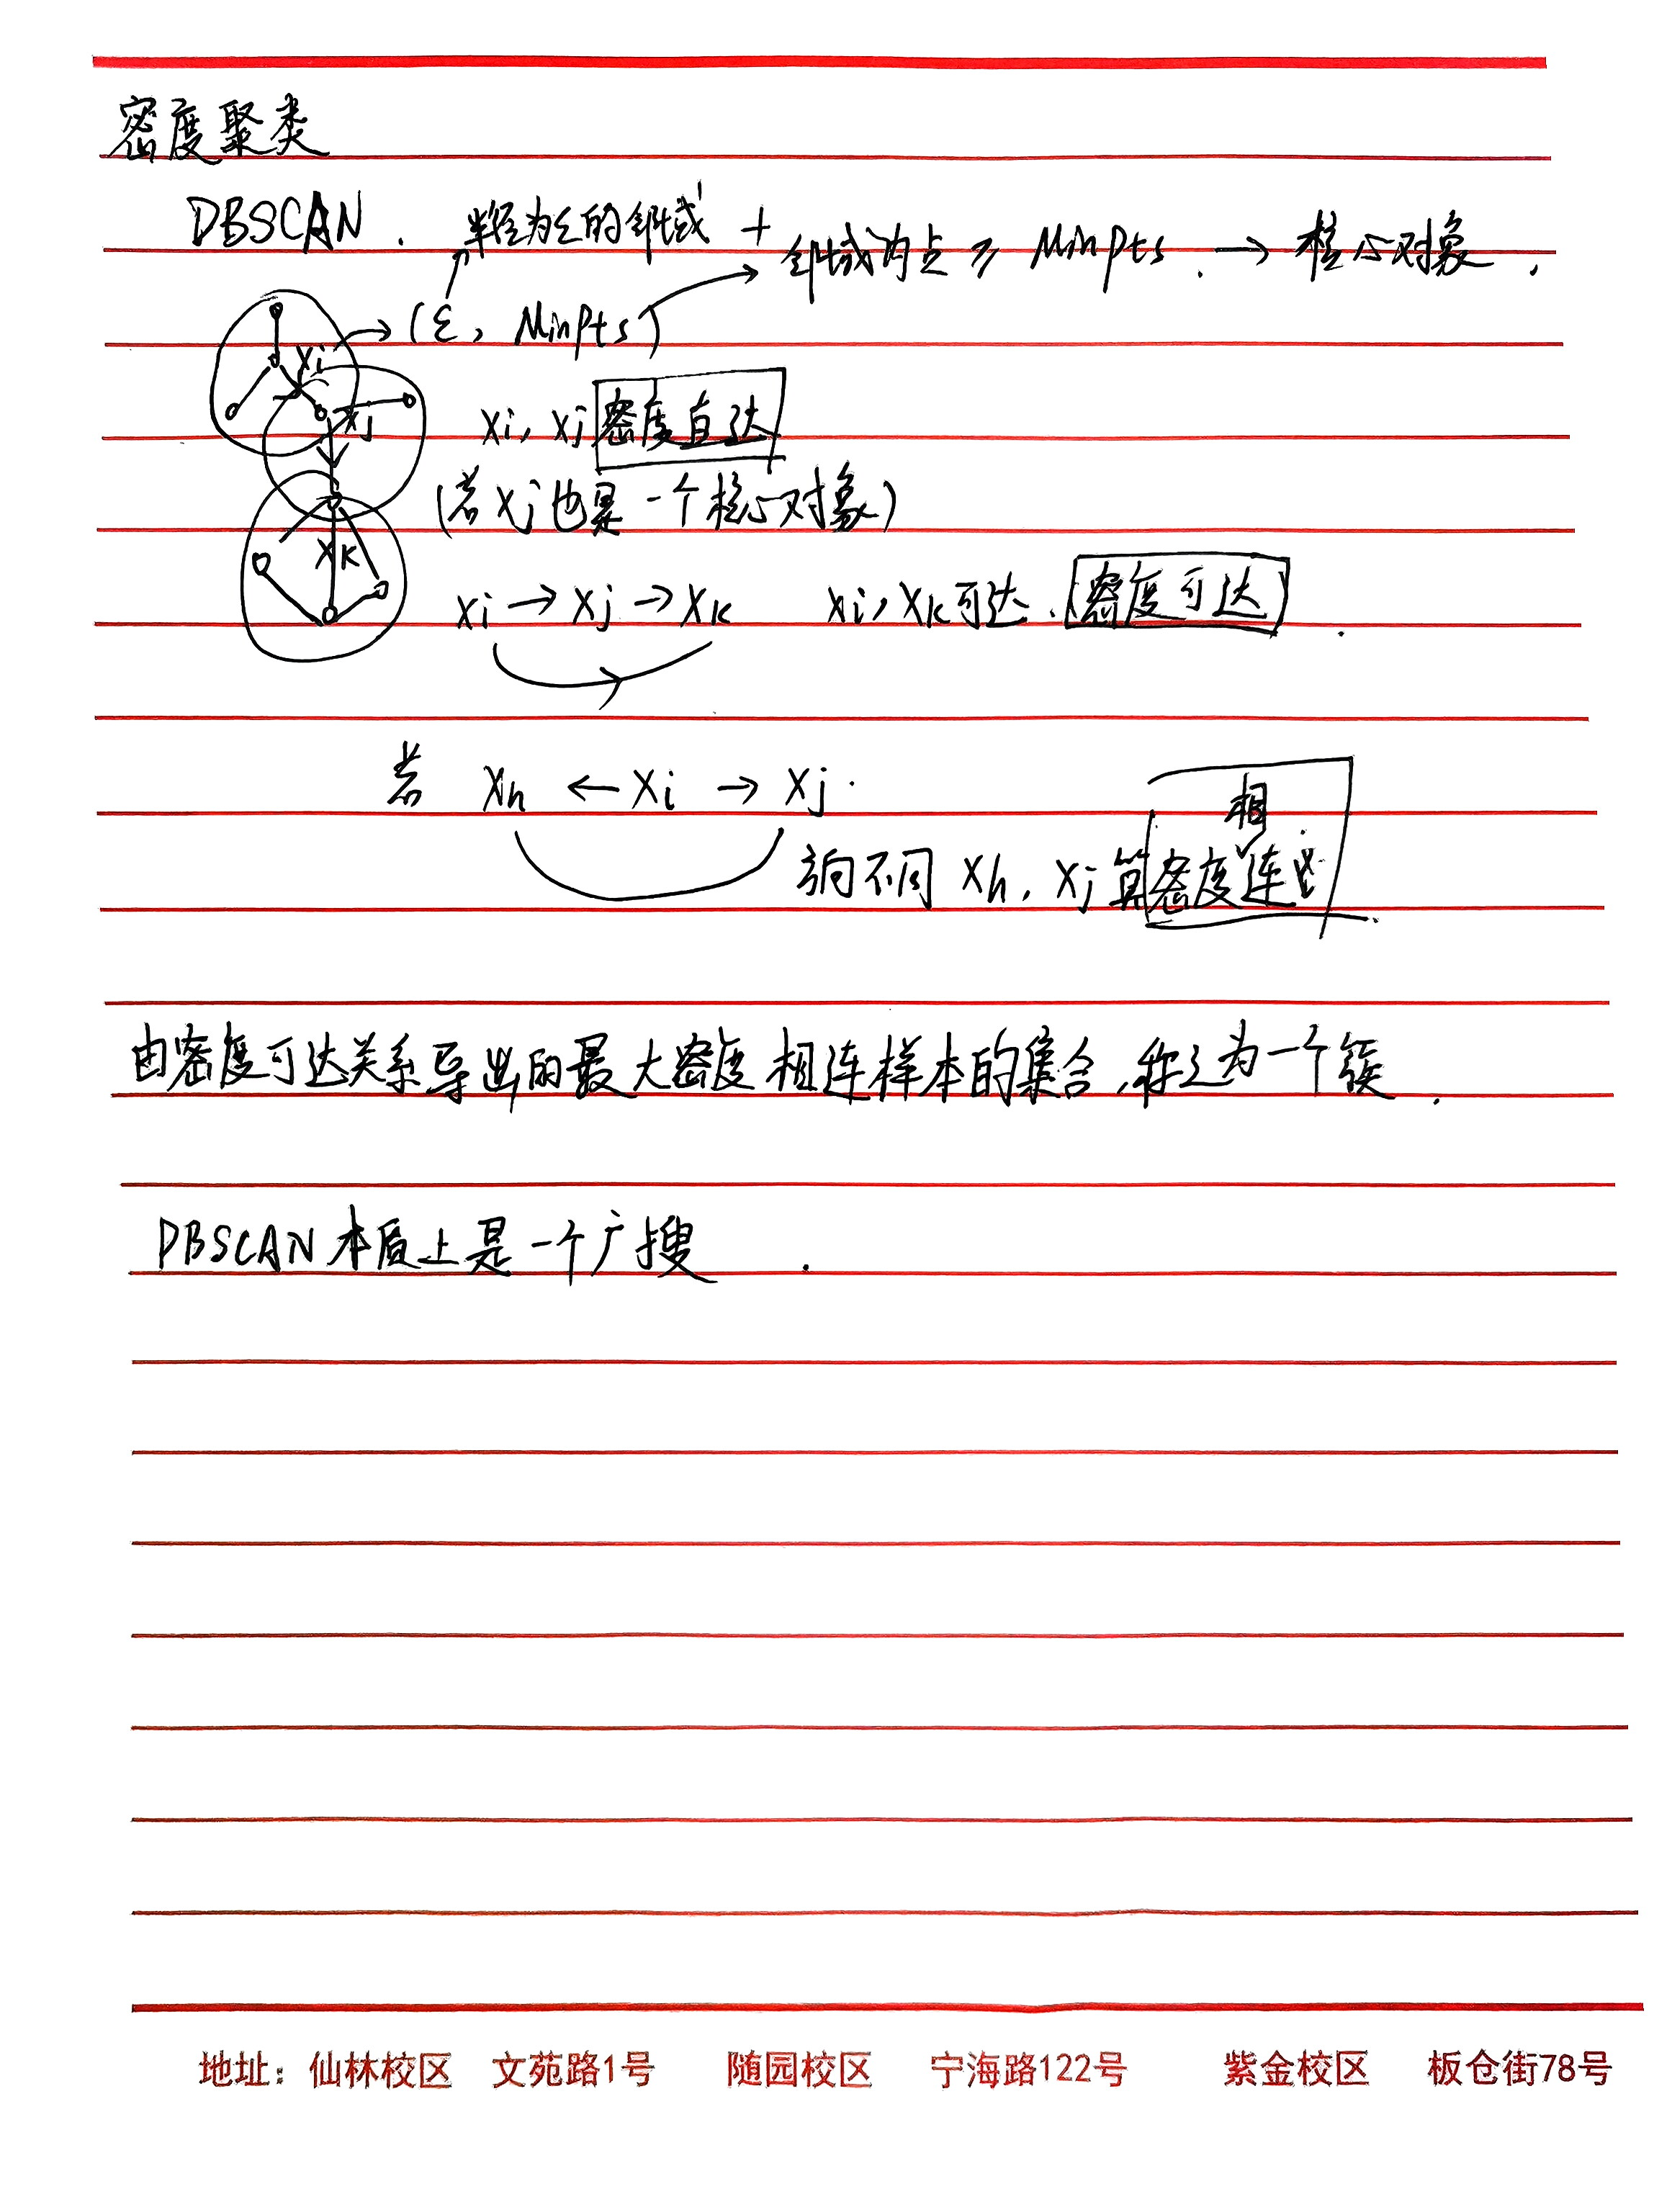 密度聚类
DBSCAN. 半径为ε的邻域 + 邻域内点 ≥ MinPts. → 核心对象.
(ε, MinPts)
xi
xj
xi, xj 密度直达
(若xj也是一个核心对象)
xk
xi → xj → xk xi, xk可达. 密度可达.
若 xh ← xi → xj.
方向不同 xh, xj 算密度相连
由密度可达关系导出的最大密度相连样本的集合,称之为一个簇.
DBSCAN本质上是一个广搜.
地址：仙林校区 文苑路1号 随园校区 宁海路122号 紫金校区 板仓街78号